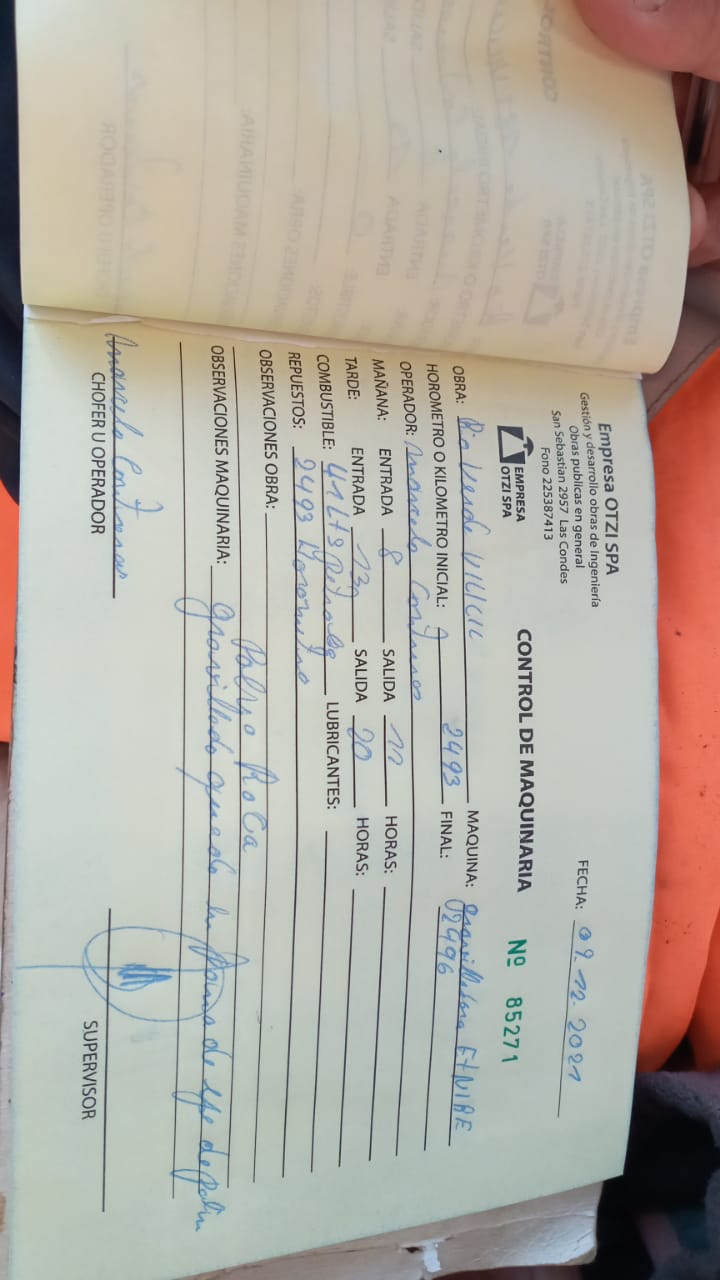 Empresa OTZI SPA
Gestión y desarrollo obras de Ingeniería
Obras publicas en general
San Sebastian 2957 Las Condes
Fono 225387413
FECHA: 09.12.2021
EMPRESA
OTZI SPA
CONTROL DE MAQUINARIA
Nº 85271
OBRA: Rio Verde VILICIC MAQUINA: gravilladora
HOROMETRO O KILOMETRO INICIAL: 2493 FINAL: 02496
OPERADOR: Marcelo Contreras
MAÑANA: ENTRADA 8 SALIDA 11 HORAS:
TARDE: ENTRADA 13 SALIDA 20 HORAS:
COMBUSTIBLE: 41 Lts LUBRICANTES:
REPUESTOS: 2493 Horometro
OBSERVACIONES OBRA:
Polvo RoCa
OBSERVACIONES MAQUINARIA: gravillado quedo en de de
Marcelo Contreras
CHOFER U OPERADOR
SUPERVISOR